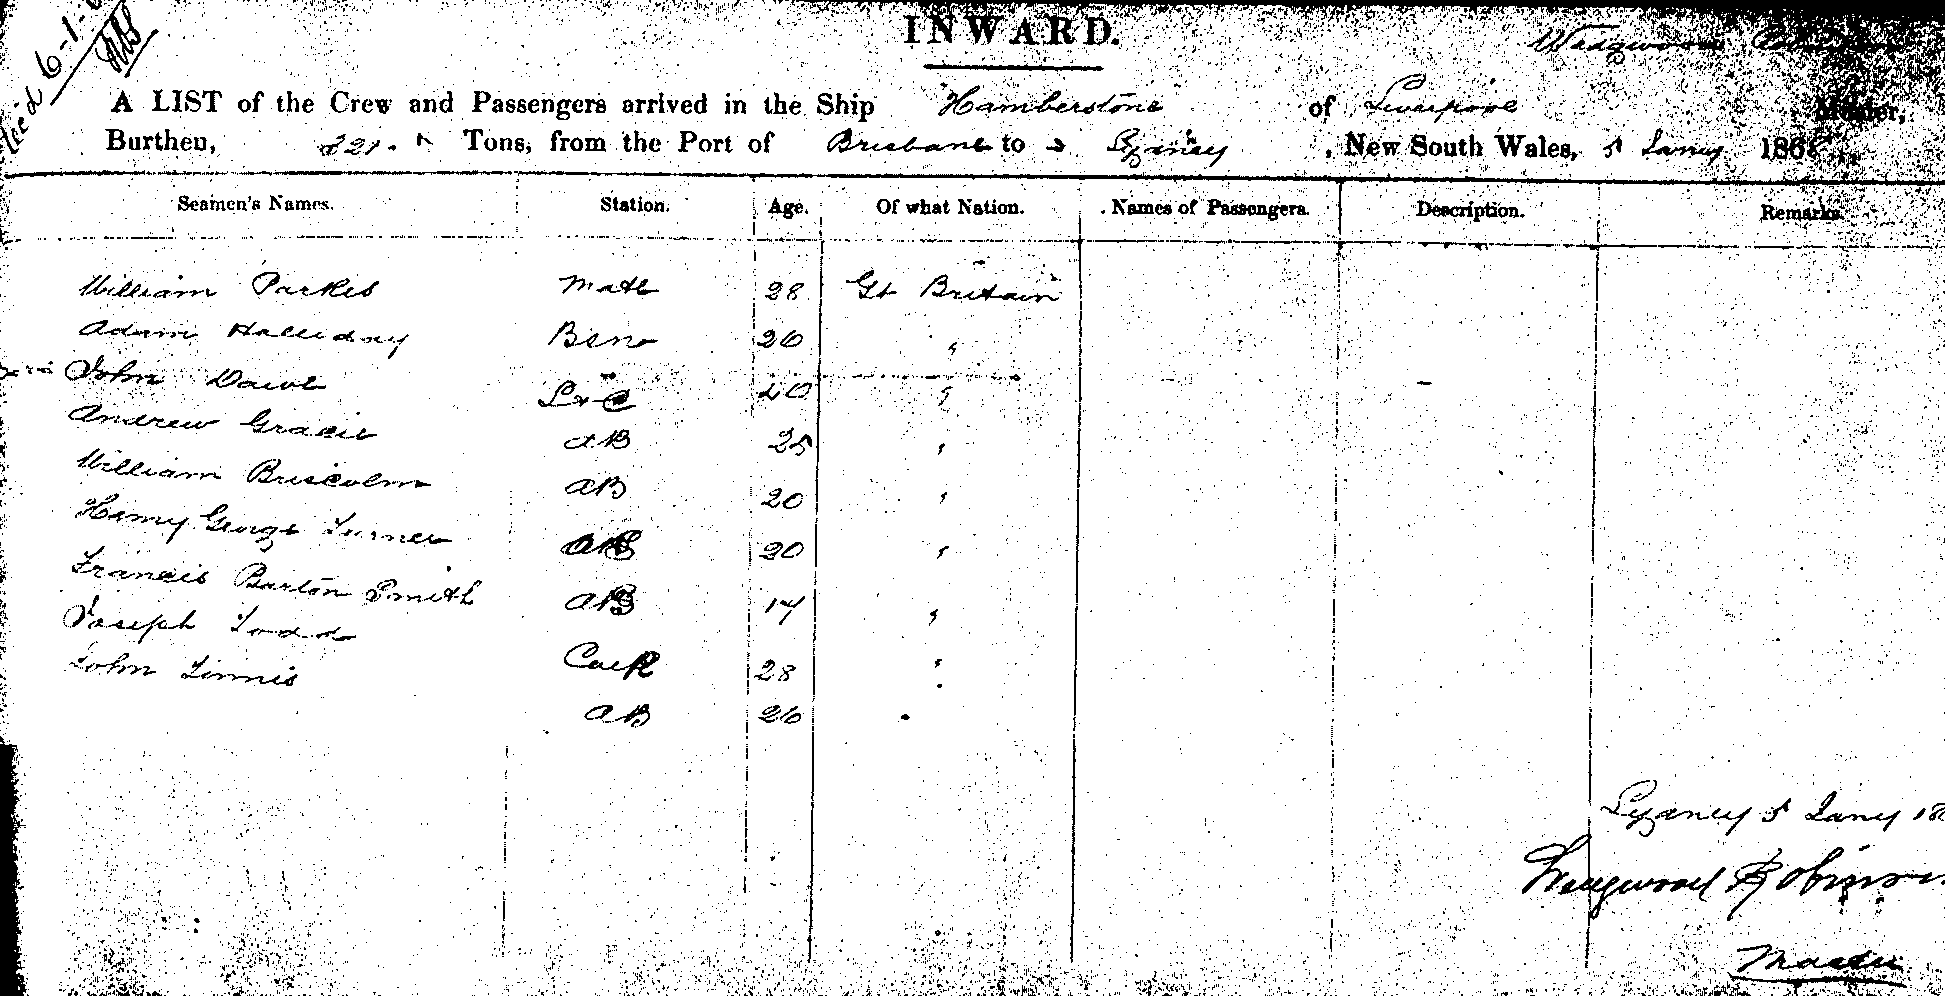 6-1-
INWARD.
Wedgwood Robinson
A LIST of the Crew and Passengers arrived in the Ship Hamberstone of Liverpool Master,
Burthen, 321 Tons, from the Port of Brisbane to Sydney, New South Wales, 5 Jany 1868
Seamen's Names. Station. Age. Of what Nation. Names of Passengers. Description. Remarks.
William Parkes Mate 28 Gt Britain
Adam Halliday Bsno 26 "
John Dawe 40 "
Andrew Gracie AB 25 "
William AB 20 "
Henry George Turner AB 20 "
Francis Barton Smith AB 17 "
Joseph Todd Cook 28 "
John Tinnis AB 26 "
Sydney 5 Jany 18
Wedgwood Robinson
Master